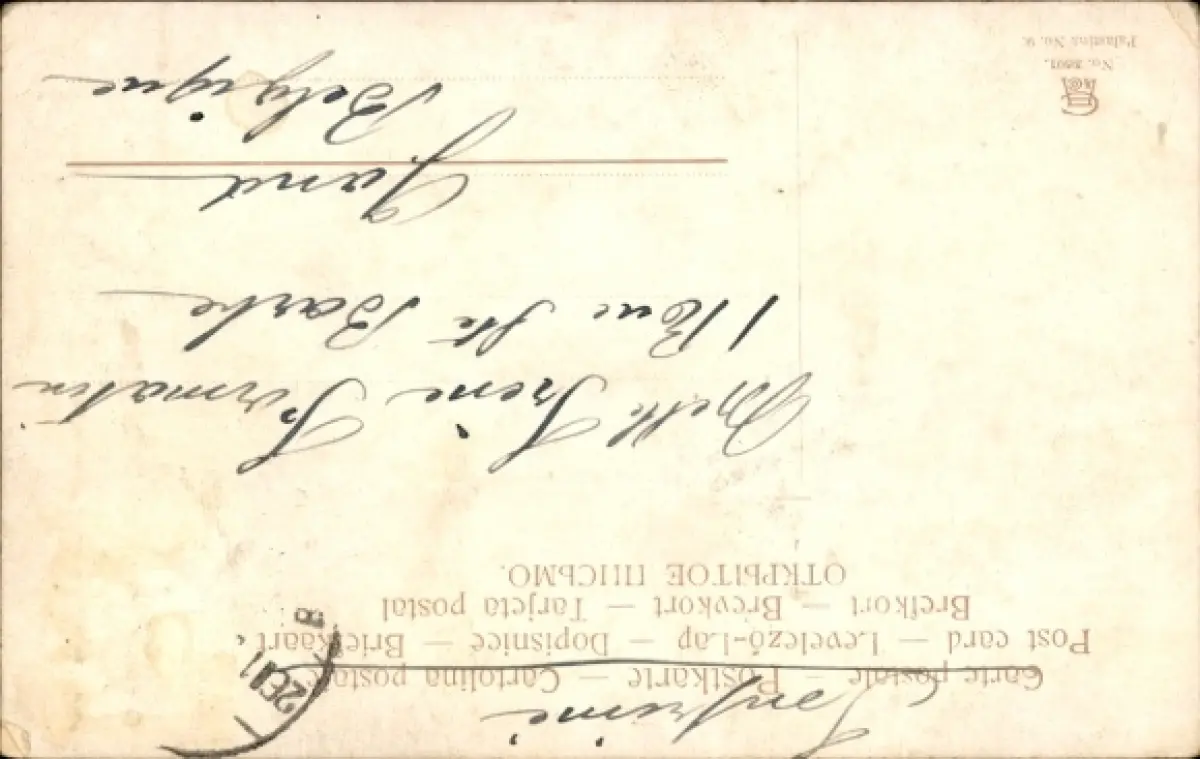 Imprimé
Carte postale — Postkarte — Cartolina postale
Post card — Levelező-Lap — Dopisnice — Briefkaart
Brefkort — Brevkort — Tarjeta postal
ОТКРЫТОЕ ПИСЬМО.
Mlle Irène
1 Rue Ste Barbe
Gand
Belgique
Palästina No. 9.